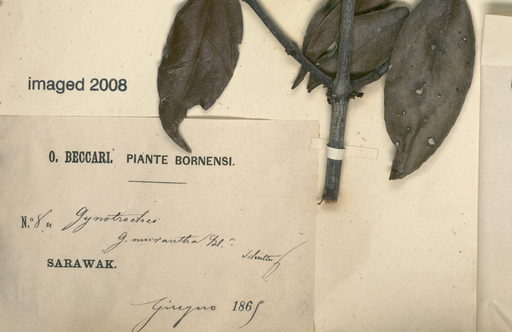 imaged 2008
O. BECCARI. PIANTE BORNENSI.
N.º Gynotroches
G. micrantha Bl.
SARAWAK.
Giugno 1865